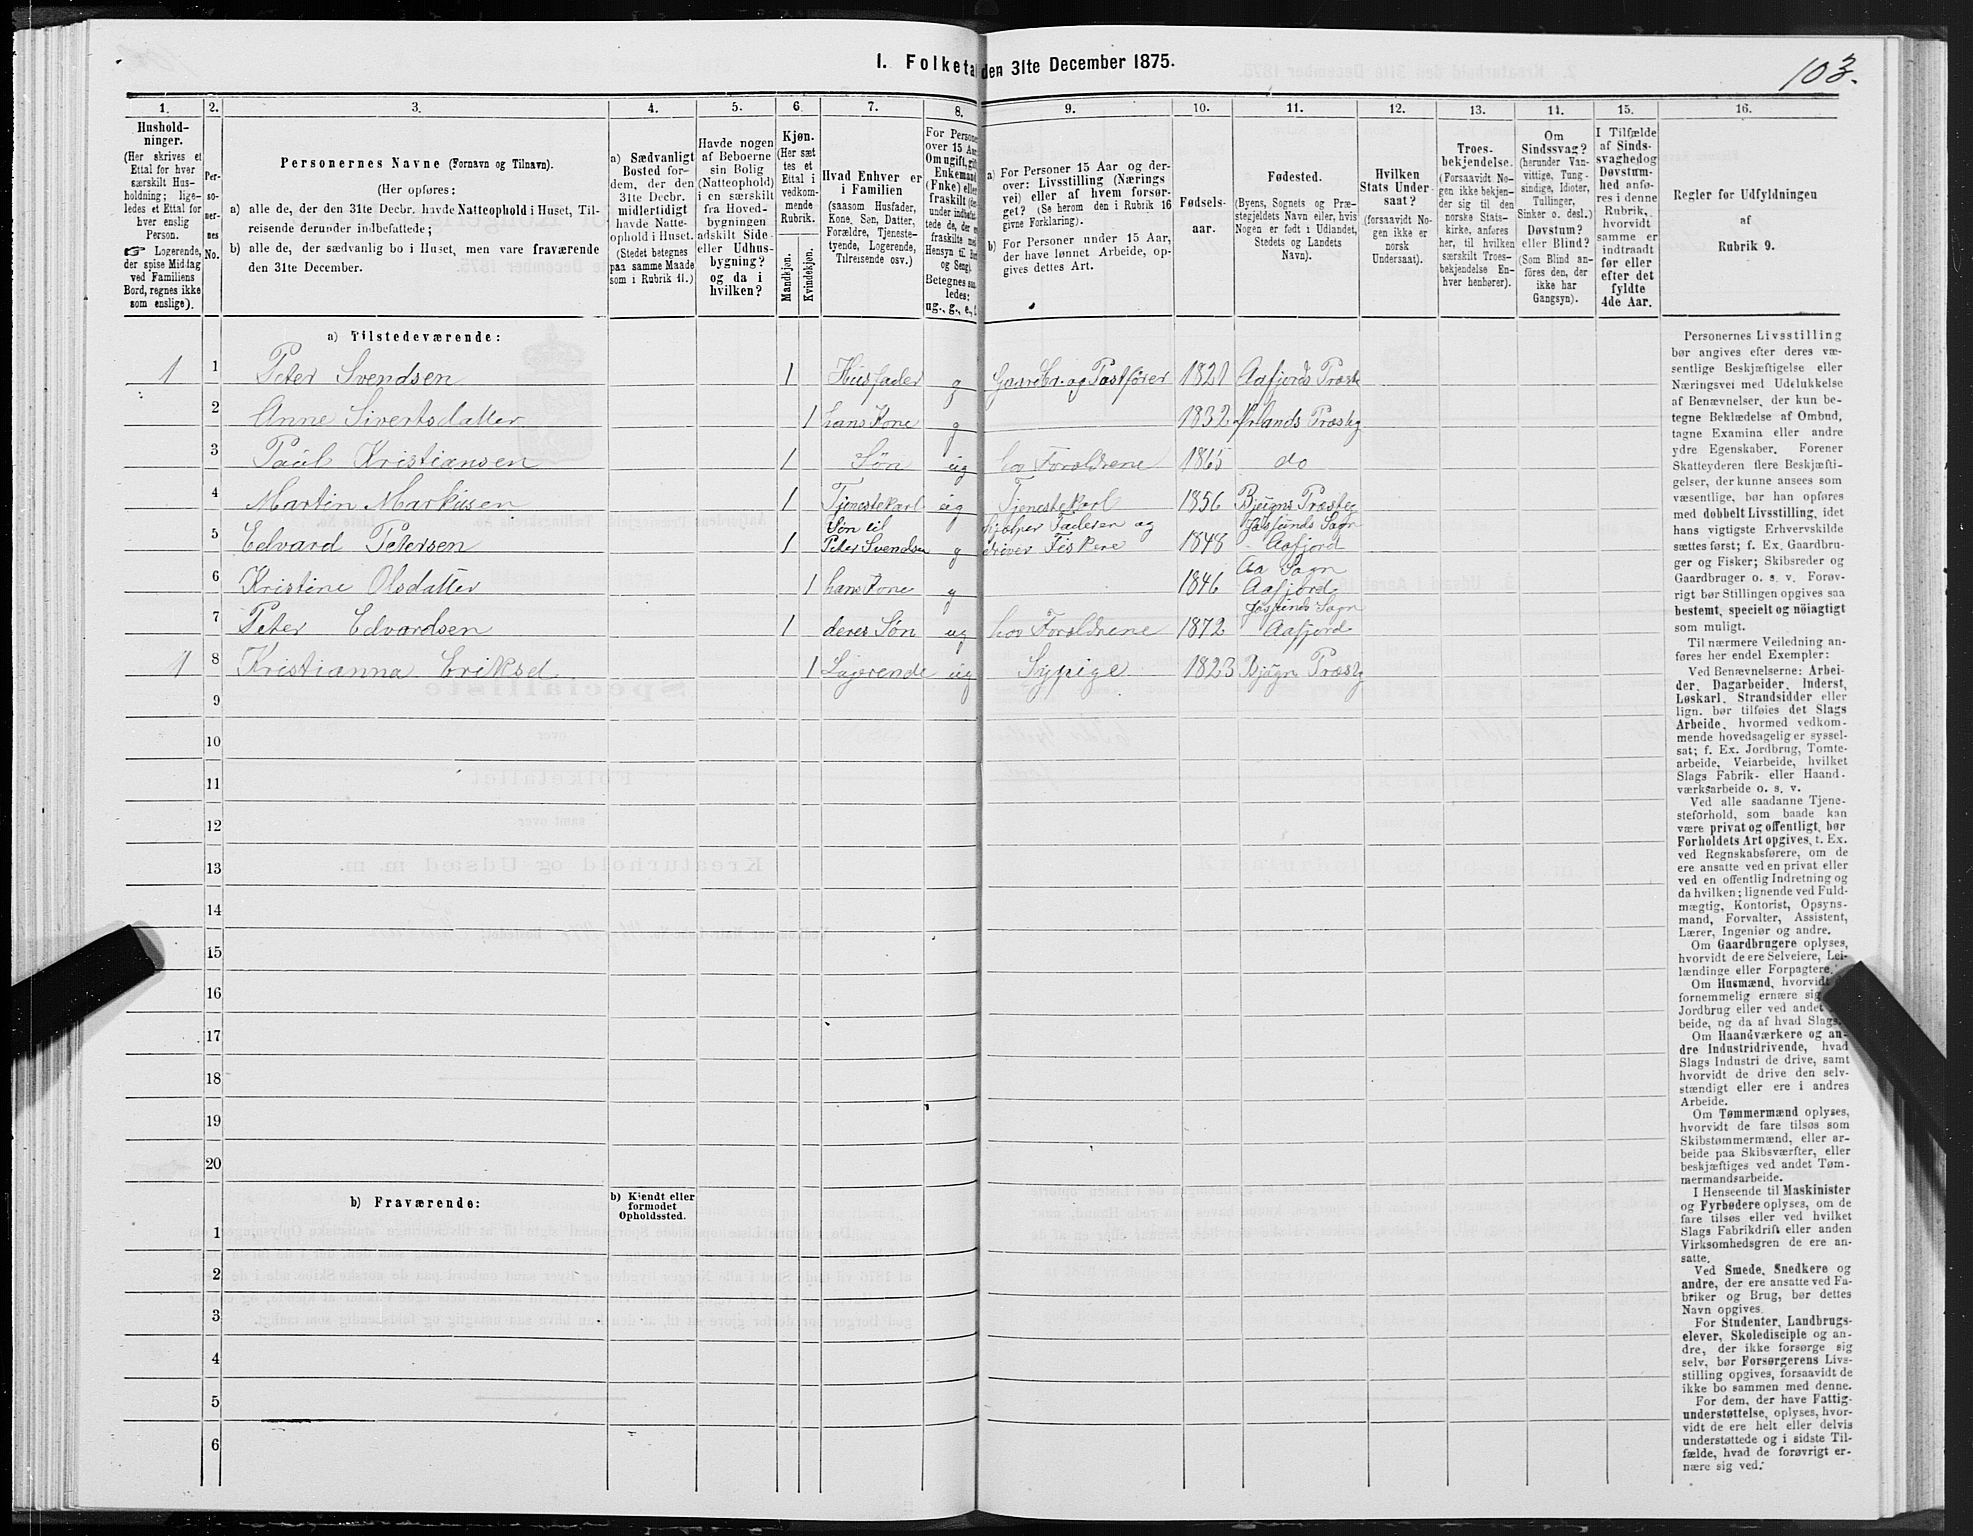 103.
1. Folketal den 31te December 1875.
1.
Hushold-
ninger.
(Her skrives et
Ettal for hver
særskilt Hus-
holdning; lige-
ledes et Ettal for
hver enslig
Person.
☞ Logerende,
der spise Middag
ved Familiens
Bord, regnes ikke
som enslige).
2.
Per-
so-
ner-
nes
No.
3.
Personernes Navne (Fornavn og Tilnavn).
(Her opføres:
a) alle de, der den 31te Decbr. havde Natteophold i Huset, Til-
reisende derunder indbefattede;
b) alle de, der sædvanlig bo i Huset, men vare fraværende
den 31te December.
4.
a) Sædvanligt
Bosted for-
dem, der den
31te Decbr.
midlertidigt
havde Natte-
ophold i Huset.
(Stedet betegnes
paa samme Maade
som i Rubrik 11.)
5.
Havde nogen
af Beboerne
sin Bolig
(Natteophold)
i en særskilt
fra Hoved-
bygningen
adskilt Side-
eller Udhus-
bygning?
og da i
hvilken?
6.
Kjøn.
(Her sæt
tes et
Ettal i
vedkom-
mende
Rubrik.
Mandkjøn.
Kvindekjøn.
7.
Hvad Enhver er
i Familien
(saasom Husfader,
Kone, Søn, Datter,
Forældre, Tjeneste-
tyende, Logerende,
Tilreisende osv.)
8.
For Persone
over 15 Aar
Om ugift, gift
Enkemand
(Enke) eller
fraskilt
Betegnes saa-
ledes:
ug., g., e.,
9.
a) For Personer 15 Aar og der-
over: Livsstilling (Nærings
vei) eller af hvem forsør-
get? (Se herom den i Rubrik 16
givne Forklaring).
b) For Personer under 15 Aar,
der have lønnet Arbeide, op-
gives dettes Art.
10.
Fødsels-
aar.
11.
Fødested.
(Byens, Sognets og Præ-
stegjeldets Navn eller, hvis
Nogen er født i Udlandet,
Stedets og Landets
Navn).
12.
Hvilken
Stats Under-
saat?
(forsaavidt No-
gen ikke er
norsk
Undersaat).
13.
Troes-
bekjendelse.
(Forsaavidt No-
gen ikke bekjen-
der sig til den
norske Stats-
kirke, anføres
her, til hvilken
særskilt Troes-
bekjendelse En-
hver henhører).
14.
Om
Sindssvag?
(herunder Van-
vittige, Tung-
sindige, Idioter,
Tullinger,
Sinker o. desl.)
Døvstum?
eller Blind?
(Som Blind an-
føres den, der
ikke har
Gangsyn).
15.
I Tilfælde
af Sinds-
svaghed og
Døvstum-
hed anfø-
res i denne
Rubrik,
hvorvidt
samme er
indtraadt
før eller
efter det
fyldte
4de Aar.
16.
Regler for Udfyldningen
af
Rubrik 9.
a) Tilstedeværende:
1 1 Peter Svendsen 1 Husfader g Gaardbr. og Postfører 1821 Aafjords Præste
2 Anne Sivertsdatter 1 hans Kone g 1832 Ørlands Præstg
3 Paul Kristiansen 1 Søn ug hos Forældrene 1865 do
4 Martin Markusen 1 Tjenestekarl ug Tjenestekarl 1856 Bjugns Præsteg
5 Edvard Petersen 1 Søn til Peter Svendsen g hjælper Faderen og driver Fiskere 1848 Jøssunds Sogn Aafjord
6 Kristine Olsdatter 1 hans Kone g 1846 Aa Sogn Aafjord
7 Peter Edvardsen 1 deres Søn ug hos Forældrene 1872 Jøssunds Sogn Aafjord
1 8 Kristianna Eriksd 1 Logerende ug Sypige 1823 Bjugn Præstg
9
10
11
12
13
14
15
16
17
18
19
20
b) Fraværende:
b) Kjendt eller
formodet
Opholdssted.
1
2
3
4
5
6
Personernes Livsstilling
bør angives efter deres væ-
sentlige Beskjæftigelse eller
Næringsvei med Udelukkelse
af Benævnelser, der kun be-
tegne Beklædelse af Ombud,
tagne Examina eller andre
ydre Egenskaber. Forener
Skatteyderen flere Beskjæfti-
gelser, der kunne ansees som
væsentlige, bør han opføres
med dobbelt Livsstilling, idet
hans vigtigste Erhvervskilde
sættes først; f. Ex. Gaardbru-
ger og Fisker; Skibsreder og
Gaardbruger o. s. v. Forøv-
rigt bør Stillingen opgives saa
bestemt, specielt og nöiagtigt
som muligt.
Til nærmere Veiledning an-
føres her endel Exempler:
Ved Benævnelserne: Arbei-
der, Dagarbeider, Inderst,
Løskarl, Strandsidder eller
lign. bør tilføies det Slags
Arbeide, hvormed vedkom-
mende hovedsagelig er syssel-
sat; f. Ex. Jordbrug, Tomte-
arbeide, Veiarbeide, hvilket
Slags Fabrik- eller Haand-
værksarbeide o. s. v.
Ved alle saadanne Tjene-
steforhold, som baade kan
være privat og offentligt, bør
Forholdets Art opgives, t. Ex.
ved Regnskabsførere, om de
ere ansatte ved en privat eller
ved en offentlig Indretning og
da hvilken; lignende ved Fuld-
mægtig, Kontorist, Opsyns-
mand, Forvalter, Assistent,
Lærer, Ingeniør og andre.
Om Gaardbrugere oplyses,
hvorvidt de ere Selveiere, Lei-
lændinge eller Forpagtere.
Om Husmænd, hvorvidt
fornemmelig ernære sig
Jordbrug eller ved andet
beide, og da af hvad Slags.
Om Haandværkere og an-
dre Industridrivende, hvad
Slags Industri de drive, samt
hvorvidt de drive den selv-
stændigt eller ere i andres
Arbeide.
Om Tømmermænd oplyses,
hvorvidt de fare tilsøs som
Skibstømmermænd, eller ar-
beide paa Skibsværfter, eller
beskjæftiges ved andet Tøm-
mermandsarbeide.
I Henseende til Maskinister
og Fyrbødere oplyses, om de
fare tilsøs eller ved hvilket
Slags Fabrikdrift eller anden
Virksomhedsgren de ere an-
satte.
Ved Smede, Snedkere og
andre, der ere ansatte ved Fa-
briker og Brug, bør dettes
Navn opgives.
For Studenter, Landbrugs-
elever, Skoledisciple og an-
dre, der ikke forsørge sig
selv, bør Forsørgerens Livs-
stilling opgives, forsaavidt de
ikke bo sammen med denne.
For dem, der have Fattig-
understøttelse, oplyses, hvor-
vidt de ere helt eller delvis
understøttede og i sidste Til-
fælde, hvad de forøvrigt er-
nære sig ved.